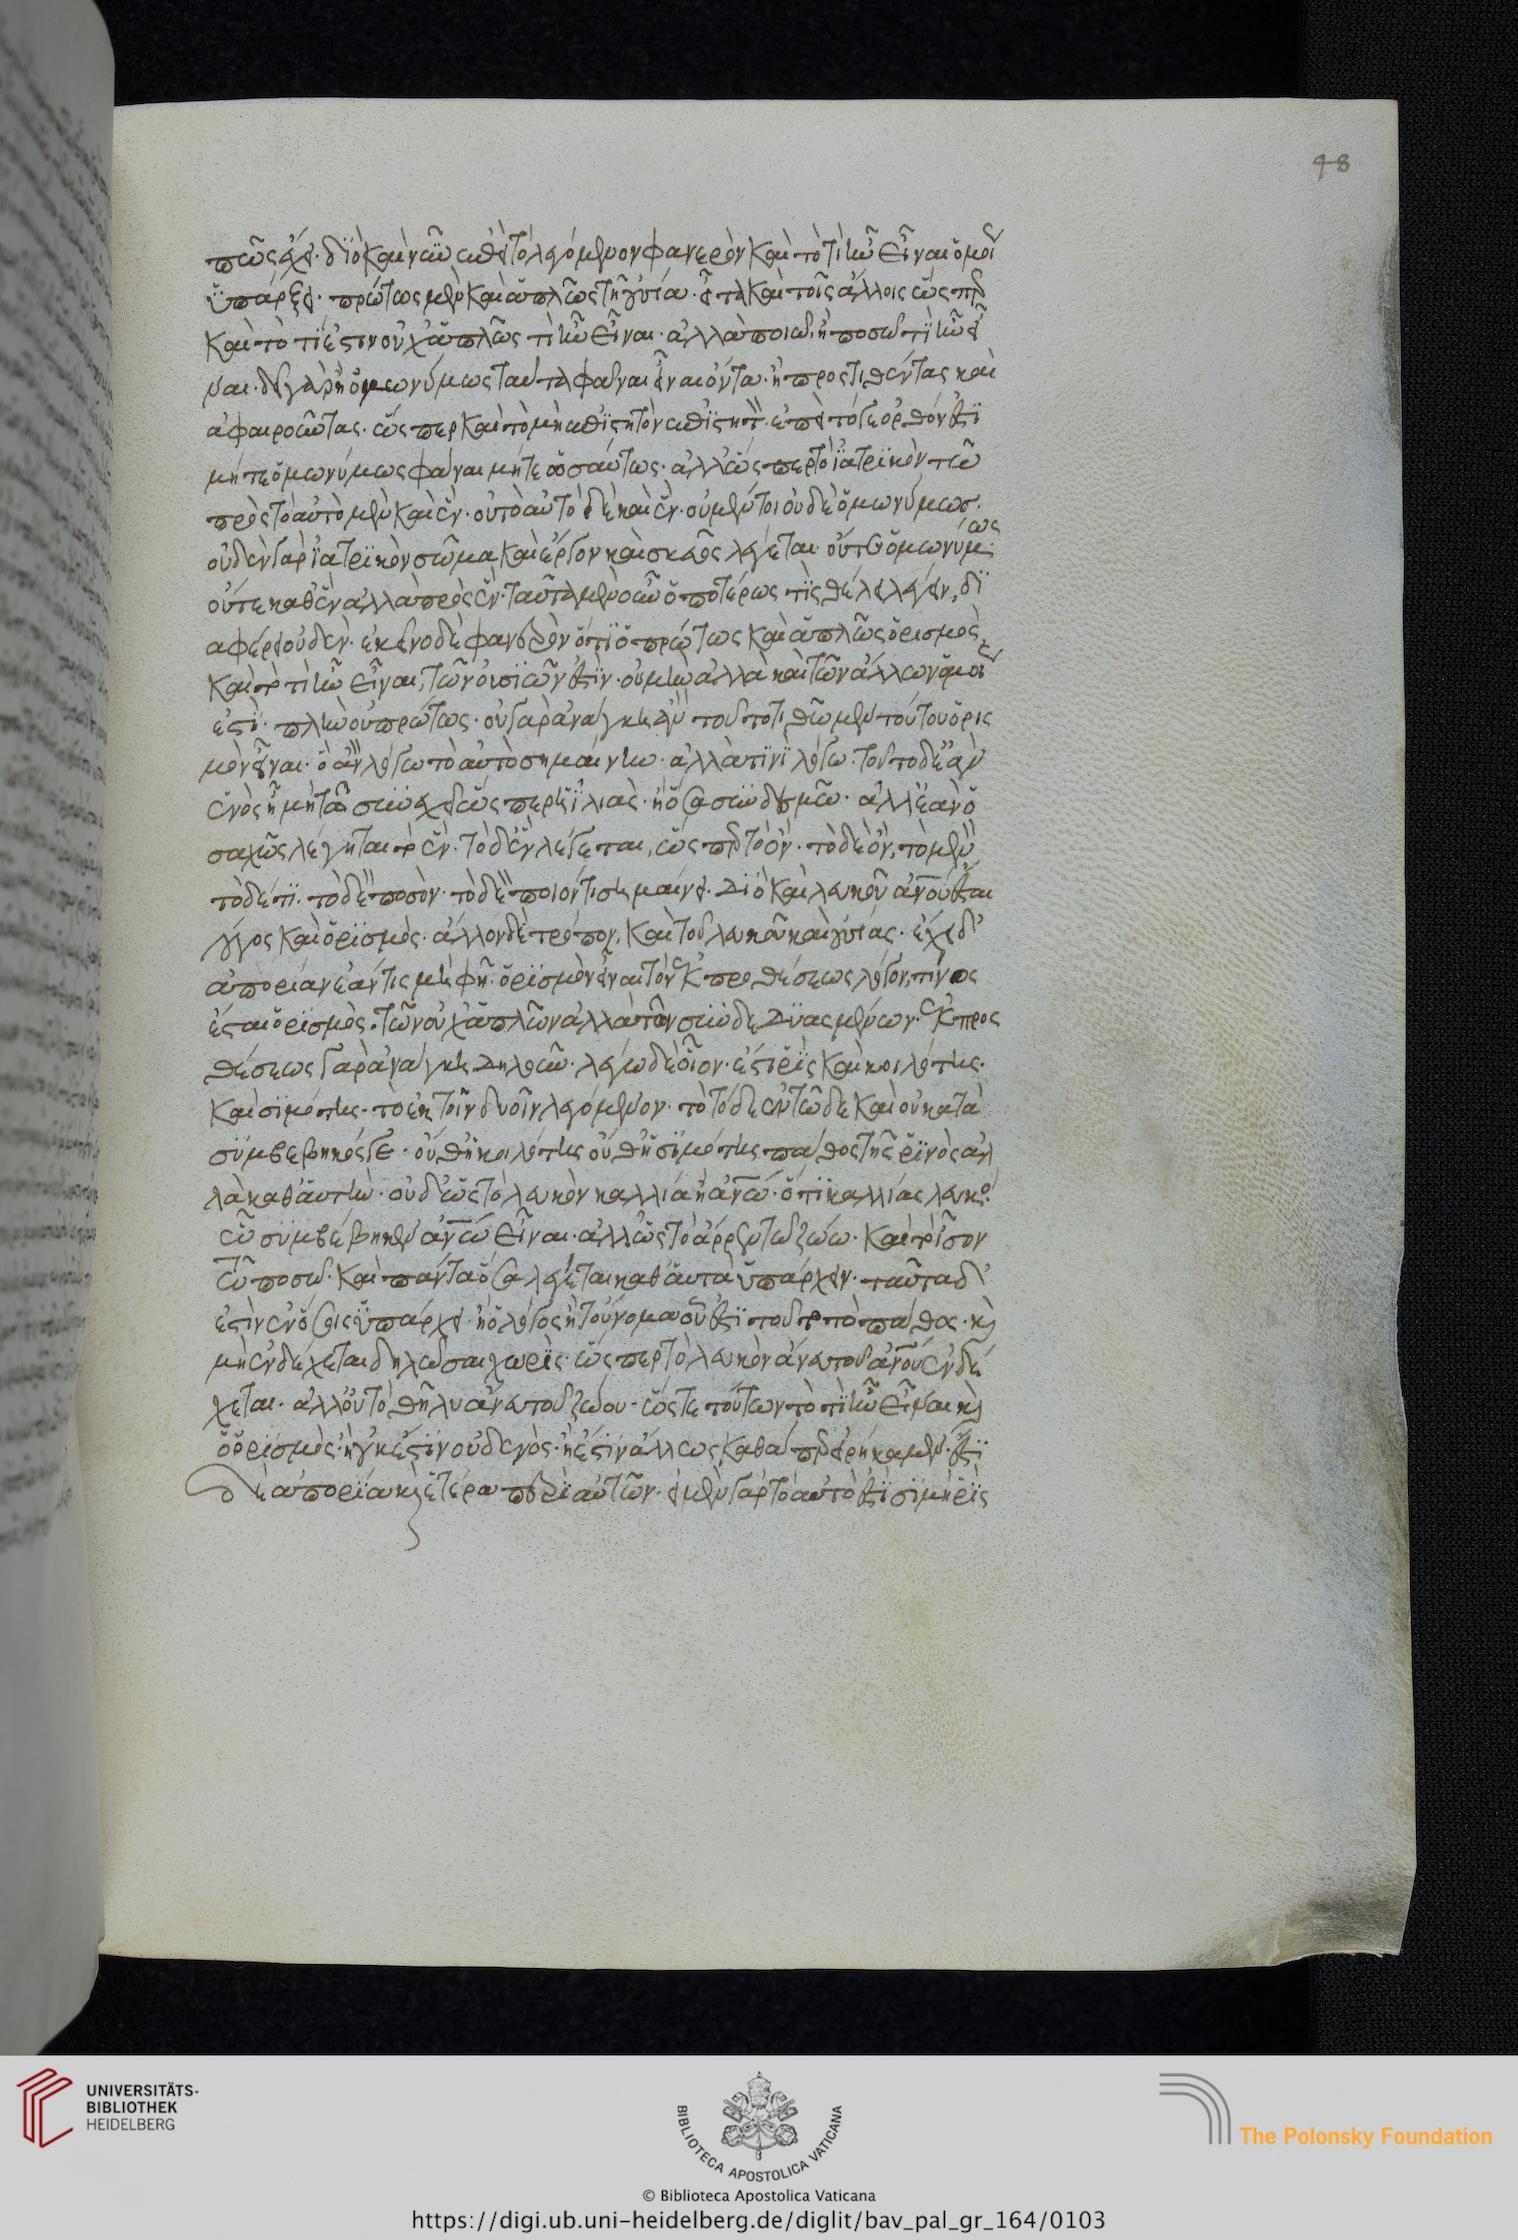 48
πῶς ἔχει. διὸ καὶ νῦν ἐπεὶ τὸ λεγόμενον φανερὸν καὶ τὸ τί ἦν εἶναι ὁμοί
ὑπάρξει. πρώτως μὲν καὶ ἁπλῶς τῇ οὐσίᾳ. εἶτα καὶ τοῖς ἄλλοις ὥσπερ
καὶ τὸ τί ἐστιν οὐχ ἁπλῶς τί ἦν εἶναι. ἀλλὰ ποιῷ. ἢ ποσῷ τί ἦν εἶ
ναι. δεῖ γὰρ ἢ ὁμωνύμως ταῦτα φάναι εἶναι ὄντα. ἢ προστιθέντας καὶ
ἀφαιροῦντας. ὥσπερ καὶ τὸ μὴ ἐπιστητὸν ἐπιστητόν. ἐπεὶ τό γε ὀρθόν ἐστι
μήτε ὁμωνύμως φάναι μήτε ὡσαύτως. ἀλλ' ὥσπερ τὸ ἰατρικὸν τῷ
πρὸς τὸ αὐτὸ μὲν καὶ ἕν. οὐ τὸ αὐτὸ δὲ καὶ ἕν. οὐ μέντοι οὐδὲ ὁμωνύμως.
οὐδὲν γὰρ ἰατρικὸν σῶμα καὶ ἔργον καὶ σκεῦος λέγεται. οὔτε ὁμωνύμως
οὔτε καθ' ἓν ἀλλὰ πρὸς ἕν. ταῦτα μὲν οὖν ὁποτέρως τις θέλει λέγειν, δι
αφέρει οὐδέν. ἐκεῖνο δὲ φανερὸν ὅτι ὁ πρώτως καὶ ἁπλῶς ὁρισμὸς,
καὶ τὸ τί ἦν εἶναι, τῶν οὐσιῶν ἐστίν. οὐ μὴν ἀλλὰ καὶ τῶν ἄλλων ὁμοί
ἐστί. πλὴν οὐ πρώτως. οὐ γὰρ ἀνάγκη ἂν τοῦτο τιθῶμεν τούτου ὁρισ
μὸν εἶναι. ὃ ἂν λόγῳ τὸ αὐτὸ σημαίνῃ. ἀλλὰ τινὶ λόγῳ. τοῦτο δὲ ἐὰν
ἑνὸς ᾖ μὴ τῷ συνεχεῖ ὥσπερ ἡ ἰλιὰς. ἢ ὅσα συνδέσμῳ. ἀλλ' ἐὰν ὁ
σαχῶς λέγηται τὸ ἕν. τὸ δ' ἓν λέγεται, ὥσπερ τὸ ὄν. τὸ δὲ ὄν, τὸ μὲν
τόδε τι. τὸ δὲ ποσὸν. τὸ δὲ ποιόν τι σημαίνει. διὸ καὶ λευκοῦ ἀνου ἔσται
λόγος καὶ ὁρισμὸς. ἄλλον δὲ τρόπον, καὶ τοῦ λευκοῦ καὶ οὐσίας. ἔχει δ'
ἀπορίαν ἐάν τις μὴ φῇ ὁρισμὸν εἶναι τὸν ἐκ προσθέσεως λόγον, τίνος
ἔσται ὁρισμὸς. τῶν οὐχ ἁπλῶν ἀλλὰ τῶν συνδεδυασμένων. ἐκ προσ
θέσεως γὰρ ἀνάγκη δηλοῦν. λέγω δὲ οἷον. ἔστι ῥὶς καὶ κοιλότης.
καὶ σιμότης. τὸ ἐκ τοῖν δυοῖν λεγόμενον. τὸ τόδε ἐν τῷδε καὶ οὐ κατὰ
συμβεβηκός γε. οὔθ' ἡ κοιλότης οὔθ' ἡ σιμότης πάθος τῆς ῥινὸς ἀλ
λὰ καθ' αὑτὴν. οὐδ' ὡς τὸ λευκὸν καλλίᾳ ἢ ἀνῳ. ὅτι καλλίας λευκο
ᾧ συμβέβηκεν ἀνῳ εἶναι. ἀλλ' ὡς τὸ ἄρρεν τῷ ζώῳ. καὶ τὸ ἴσον
τῷ ποσῷ. καὶ πάντα ὅσα λέγεται καθ' αὑτὰ ὑπάρχειν. ταῦτα δ'
ἐστὶν ἐν ὅσοις ὑπάρχει ἢ ὁ λόγος ἢ τοὔνομα οὗ ἐστι τοῦτο τὸ πάθος. καὶ
μὴ ἐνδέχεται δηλῶσαι χωρίς. ὥσπερ τὸ λευκὸν ἄνευ τοῦ ἀνου ἐνδέ
χεται. ἀλλ' οὐ τὸ θῆλυ ἄνευ τοῦ ζώου. ὥστε τούτων τὸ τί ἦν εἶναι καὶ
ὁ ὁρισμὸς. ἢ οὐκ ἔστιν οὐδενὸς. ἢ ἔστιν ἄλλως καθάπερ εἰρήκαμεν. ἔστι
δὲ ἀπορία καὶ ἑτέρα περὶ αὐτῶν. εἰ μὲν γὰρ τὸ αὐτό ἐστι σιμὴ ῥὶς
UNIVERSITÄTS-
BIBLIOTHEK
HEIDELBERG
BIBLIOTECA APOSTOLICA VATICANA
The Polonsky Foundation
© Biblioteca Apostolica Vaticana
https://digi.ub.uni-heidelberg.de/diglit/bav_pal_gr_164/0103